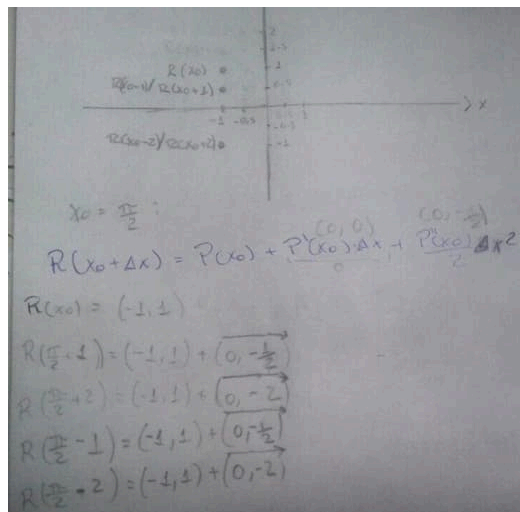 2
1.5
R(x₀) 1
R(x₀-1)/R(x₀+1) 0.5
-1 -0.5 0.5 1 > x
-0.5
R(x₀-2)/R(x₀+2) -1
x₀ = π/2 :
(0, 0) (0, -1/2)
R(x₀+Δx) = P(x₀) + P'(x₀)·Δx + P''(x₀)/2 Δx²
0
R(x₀) = (-1, 1)
R(π/2+1) = (-1, 1) + (0, -1/2)
R(π/2+2) = (-1, 1) + (0, -2)
R(π/2-1) = (-1, 1) + (0, -1/2)
R(π/2-2) = (-1, 1) + (0, -2)